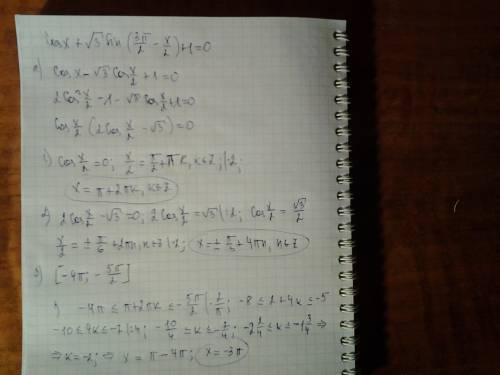 cosx + √3 sin(3π/2 − x/2) + 1 = 0
a) cosx − √3 cos x/2 + 1 = 0
2cos² x/2 − 1 − √3 cos x/2 + 1 = 0
cos x/2 (2cos x/2 − √3) = 0
1) cos x/2 = 0; x/2 = π/2 + πk, k∈Z; |·2;
x = π + 2πk, k∈Z
2) 2cos x/2 − √3 = 0; 2cos x/2 = √3 |:2; cos x/2 = √3/2
x/2 = ± π/6 + 2πn, n∈Z |·2; x = ± π/3 + 4πn, n∈Z
б) [−4π; −5π/2]
1) −4π ≤ π + 2πk ≤ −5π/2 |·2/π; −8 ≤ 2 + 4k ≤ −5
−10 ≤ 4k ≤ −7 |:4; −10/4 ≤ k ≤ −7/4; −2 2/4 ≤ k ≤ −1 3/4 ⇒
⇒ k = −2; ⇒ x = π − 4π; x = −3π